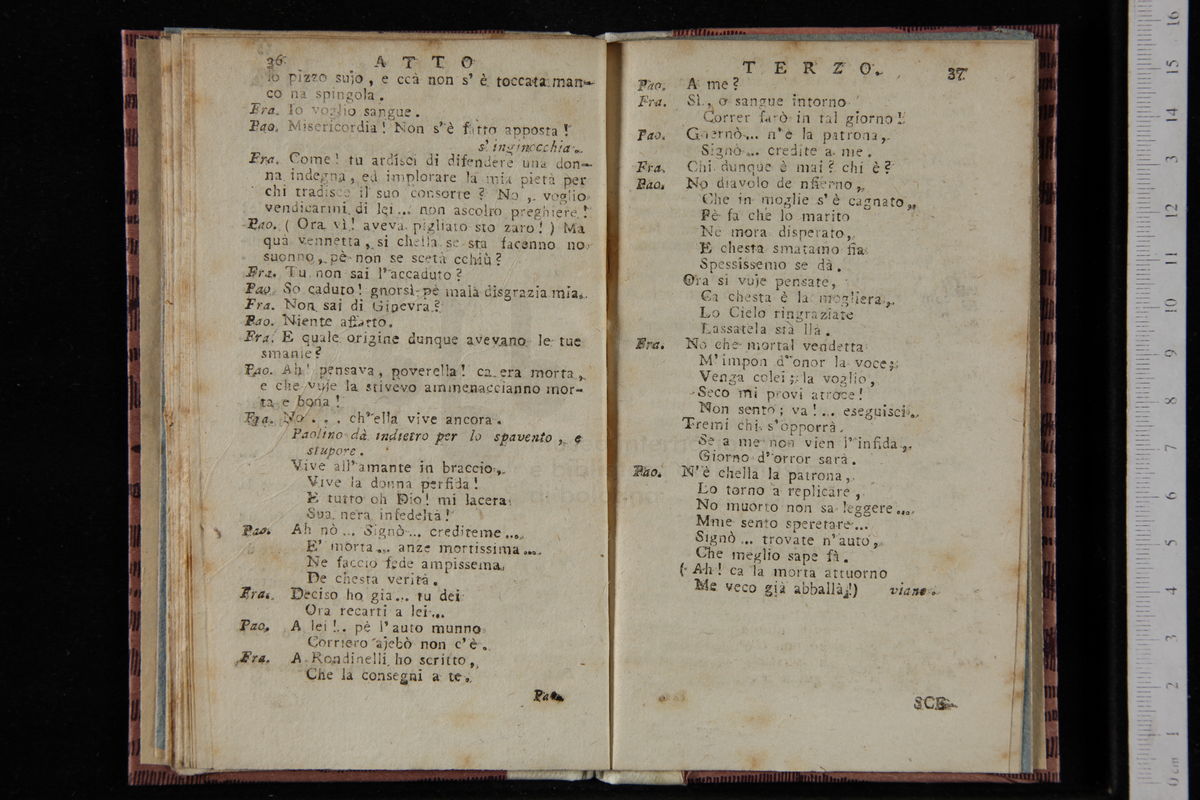 36 ATTO
lo pizzo sujo, e ccà non s'è toccata man-
co na spingola.
Fra. Io voglio sangue.
Pao. Misericordia! Non s'è fatto apposta!
s'inginocchia.
Fra. Come! tu ardisci di difendere una don-
na indegna, ed implorare la mia pietà per
chi tradisce il suo consorte? No, voglio
vendicarmi di lei... non ascolto preghiere!
Pao. (Ora vì! aveva pigliato sto zaro!) Ma
qua vennetta, si chella se sta facenno no
suonno, pè non se scetà cchiù?
Fra. Tu non sai l'accaduto?
Pao. So caduto! gnorsì pè maia disgrazia mia.
Fra. Non sai di Ginevra?
Pao. Niente affatto.
Fra. E quale origine dunque avevano le tue
smanie?
Pao. Ah! pensava, poverella! ca era morta,
e che vuje la stivevo ammenacciànno mor-
ta e bona!
Fra. No... ch'ella vive ancora.
Paolino dà indietro per lo spavento, e
stupore.
Vive all'amante in braccio,
Vive la donna perfida!
E tutto oh Dio! mi lacera
Sua nera infedeltà!
Pao. Ah nò... Signò... crediteme...
E' morta... anze mortissima...
Ne faccio fede ampissema
De chesta verità.
Fra. Deciso ho già... tu dei
Ora recarti a lei...
Pao. A lei!.. pè l'auto munno
Corriero ajebò non c'è.
Fra. A Rondinelli ho scritto,
Che la consegni a te.
Pao.
TERZO. 37
Pao. A me?
Fra. Sì, o sangue intorno
Correr farò in tal giorno!
Pao. Guernò... n'è la patrona,
Signò... credite a me.
Fra. Chi dunque è mai? chi è?
Pao. No diavolo de nfierno,
Che in moglie s'è cagnato,
Pè fa che lo marito
Ne mora disperato,
E chesta smatamo fia
Spessissemo se dà.
Ora si vuje pensate,
Ca chesta è la mogliera,
Lo Cielo ringraziate
Lassatela stà llà.
Fra. No che mortal vendetta
M'impon d'onor la voce;
Venga colei; la voglio,
Seco mi provi atroce!
Non sento; va!... eseguisci.
Tremi chi s'opporrà.
Se a me non vien l'infida,
Giorno d'orror sarà.
Pao. N'è chella la patrona,
Lo torno a replicare,
No muorto non sa leggere...
Mme sento speretare...
Signò... trovate n'auto,
Che meglio sape fà.
(Ah! ca la morta attuorno
Me veco già abballà!) viano.
SCE-